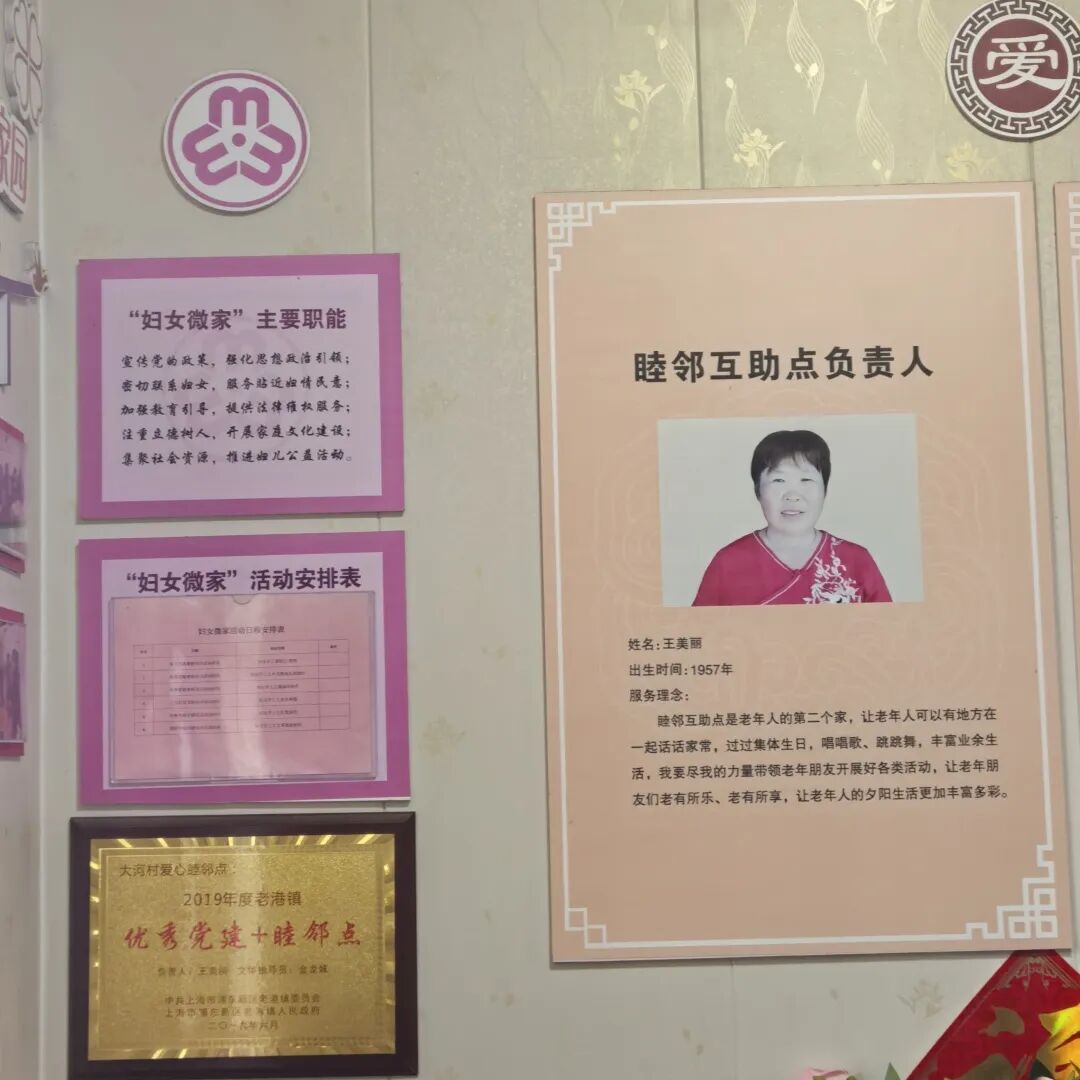 爱
“妇女微家”主要职能
宣传党的政策，强化思想政治引领；
密切联系妇女，服务贴近妇情民意；
加强教育引导，提供法律维权服务；
注重立德树人，开展家庭文化建设；
集聚社会资源，推进妇儿公益活动。
“妇女微家”活动安排表
妇女微家活动日程安排表
大河村爱心睦邻点：
2019年度老港镇
优秀党建+睦邻点
负责人：王美丽
中共上海市浦东新区老港镇委员会
上海市浦东新区老港镇人民政府
二〇一九年六月
睦邻互助点负责人
姓名：王美丽
出生时间：1957年
服务理念：
睦邻互助点是老年人的第二个家，让老年人可以有地方在
一起话话家常，过过集体生日，唱唱歌、跳跳舞，丰富业余生
活，我要尽我的力量带领老年朋友开展好各类活动，让老年朋
友们老有所乐、老有所享，让老年人的夕阳生活更加丰富多彩。